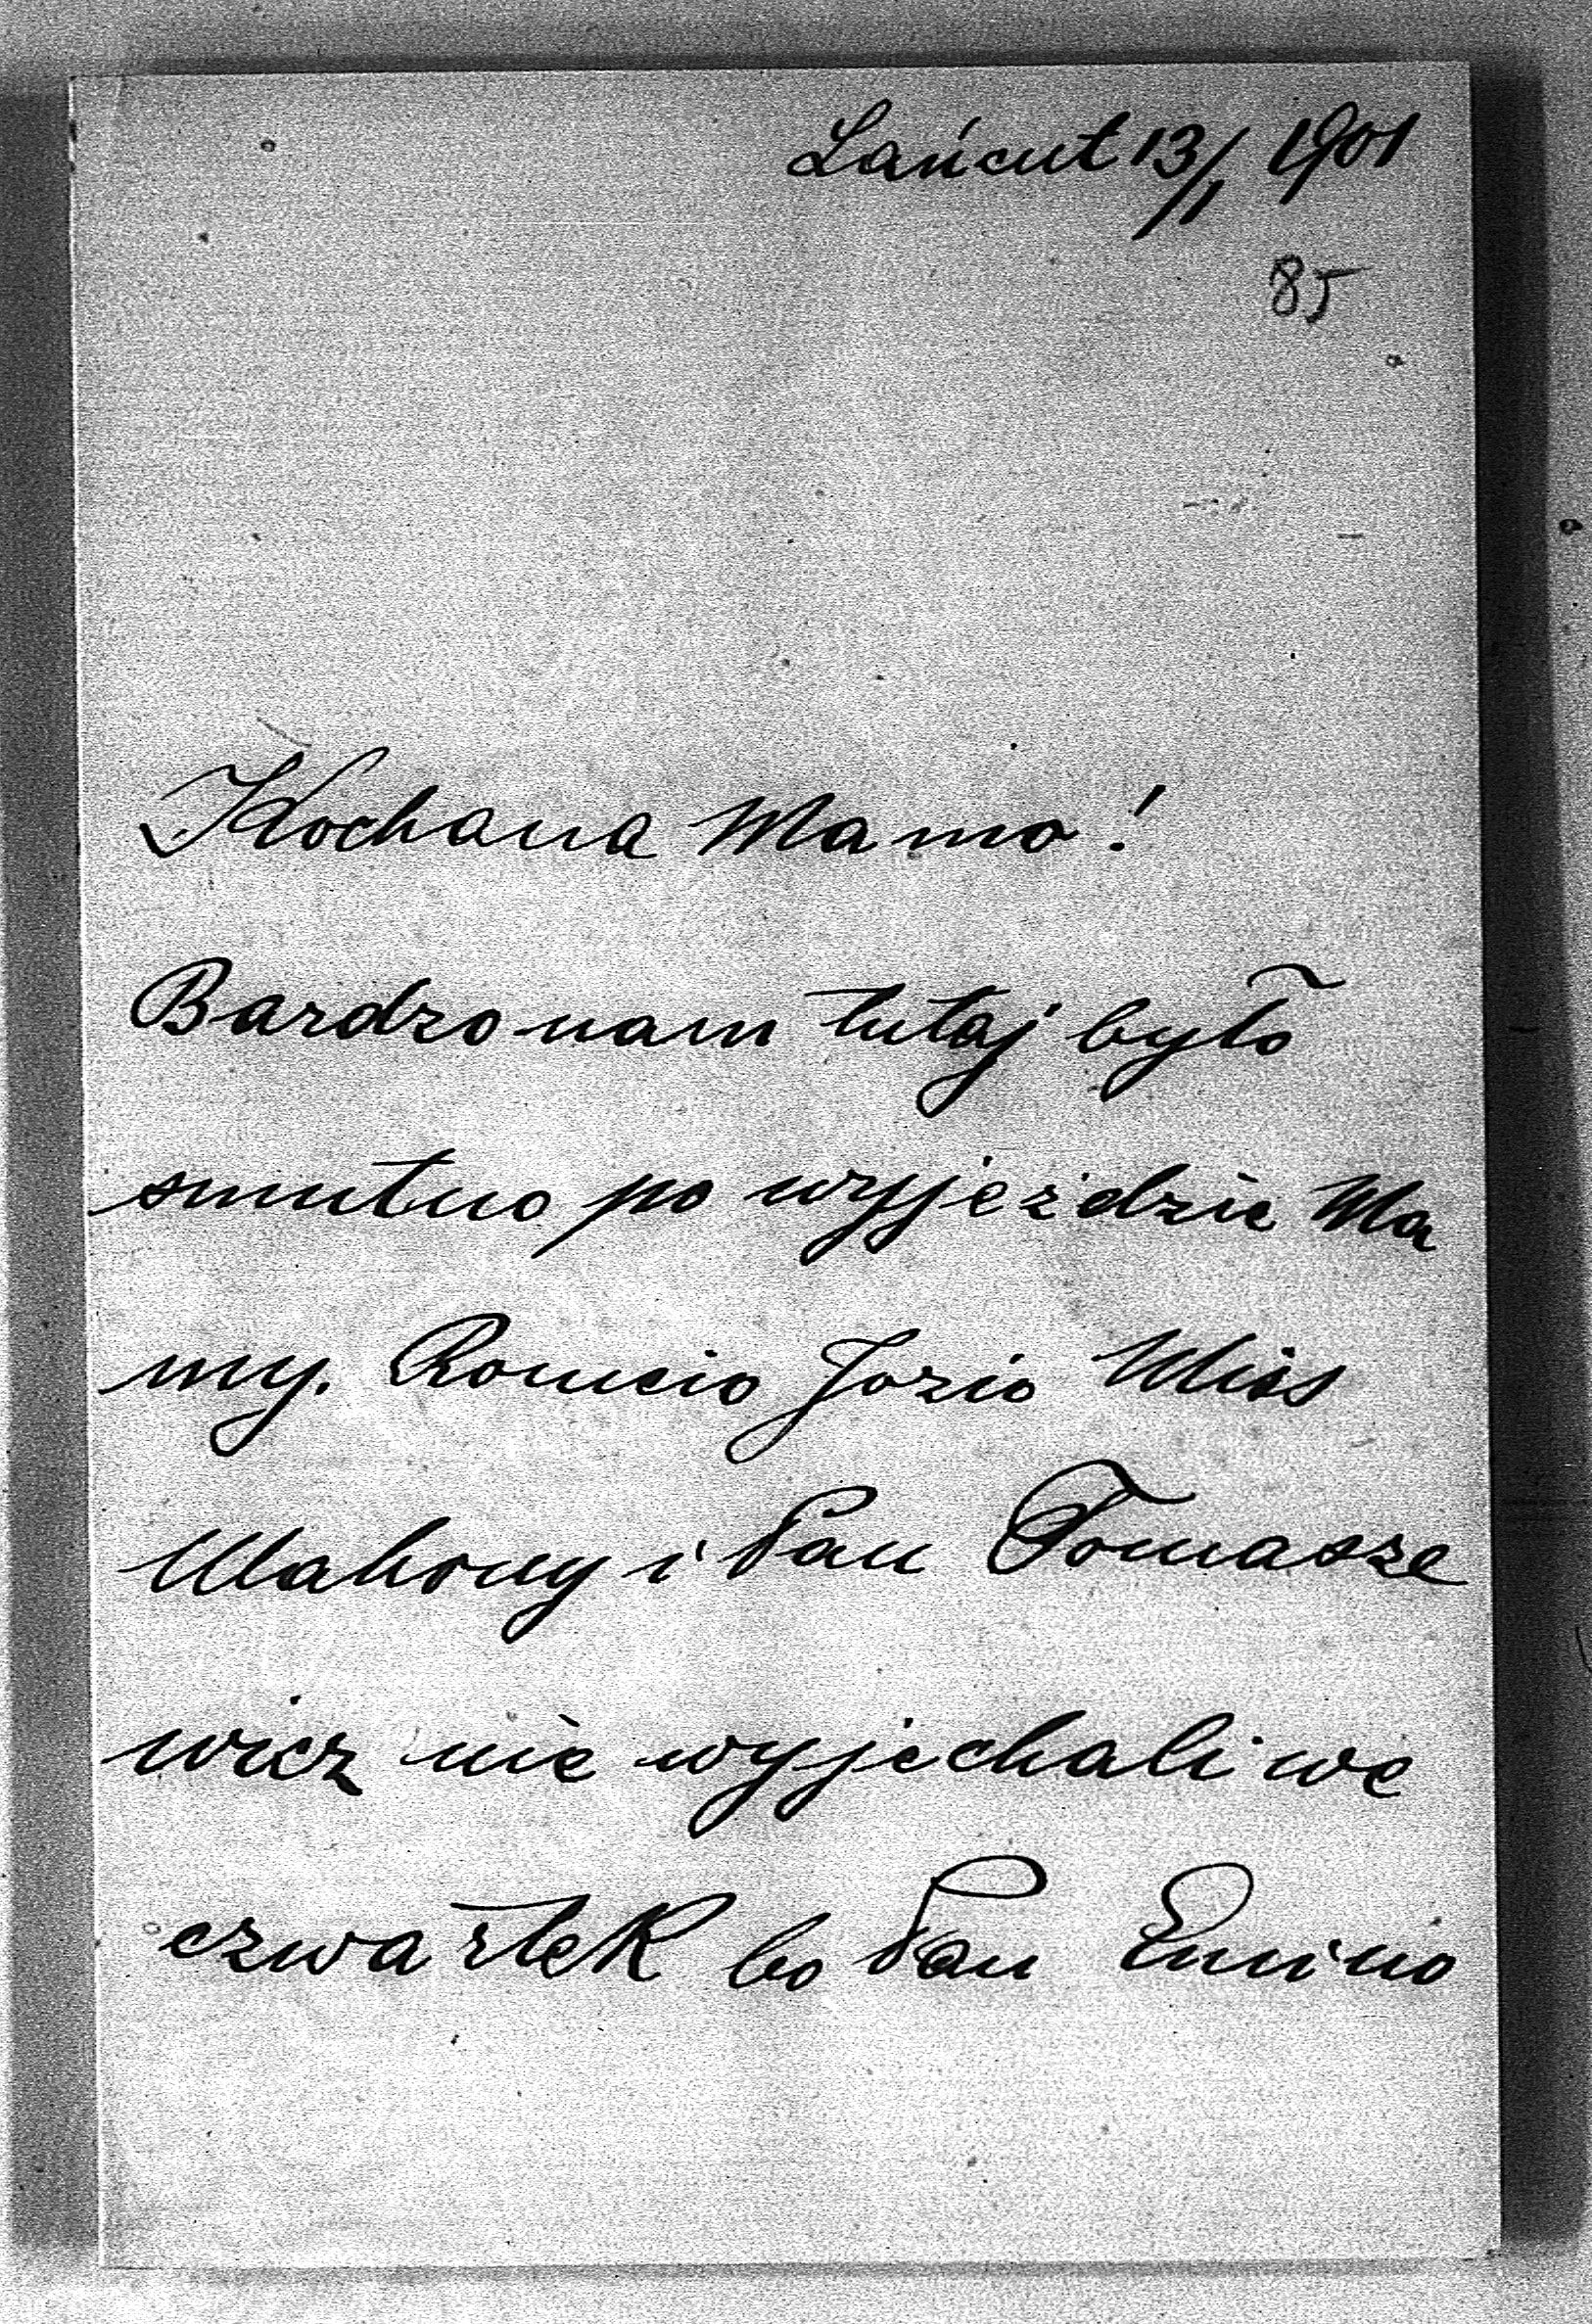 Łańcut 13/1 1901
85
Kochana Mamo!
Bardzo nam tutaj było
smutno po wyjeździe Ma
my. Romcio Jozio Miss
Mahony i Pan Tomasze
wicz nie wyjechali we
czwartek bo Pan Emino